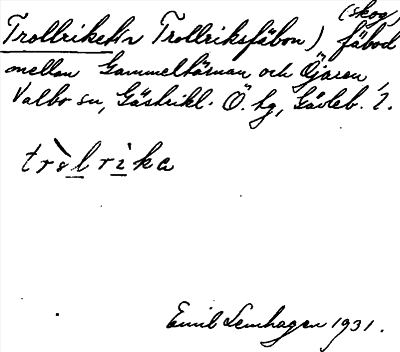 (skog,
Trollriket l. Trollriksfäbon) fäbod
mellan Gammelhäsnan och Öjaren,
Valbo sn, Gästrikl. Ö. hg, Gävleb. l.
trslrika
Emil Lemhagen 1931.